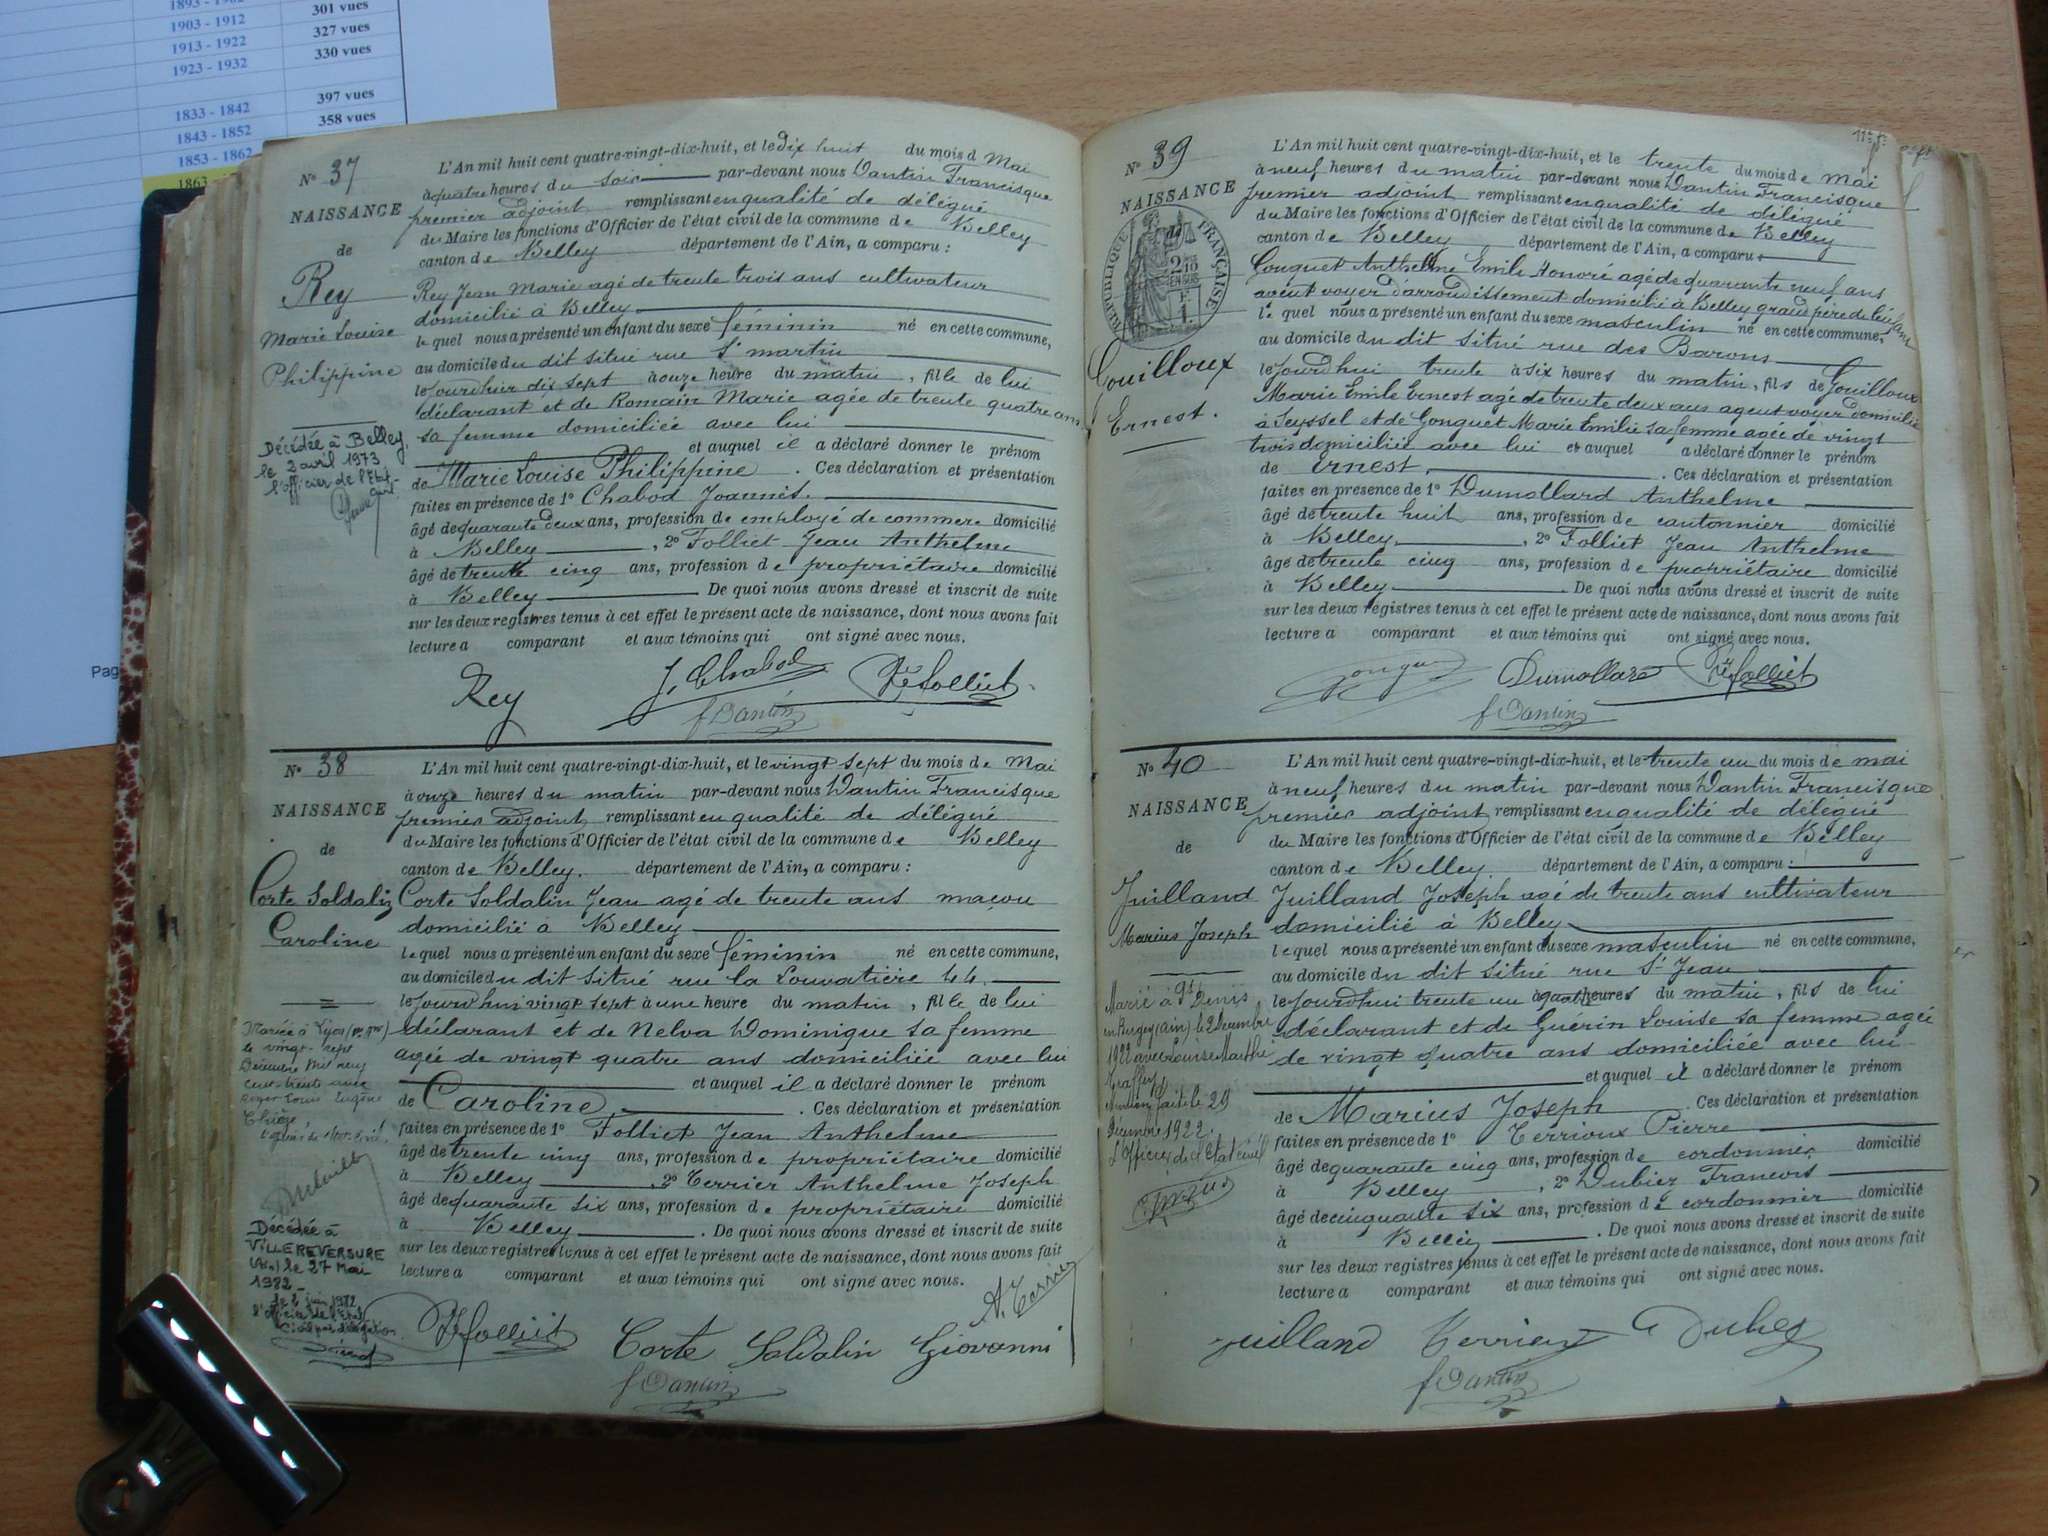 1893 - 1902
301 vues
1903 - 1912
327 vues
1913 - 1922
330 vues
1923 - 1932
397 vues
1833 - 1842
358 vues
1843 - 1852
1853 - 1862
1863
Pag
N° 37
NAISSANCE
de
Rey
Marie Louise
Philippine
Décédée à Belley
le 2 avril 1973
l'officier de l'Etat
civil
L'An mil huit cent quatre-vingt-dix-huit, et le dix huit du mois d Mai
à quatre heures du soir par-devant nous Dantin Francisque
premier adjoint remplissant en qualité de délégué
du Maire les fonctions d'Officier de l'état civil de la commune de Belley
canton de Belley département de l'Ain, a comparu :
Rey Jean Marie agé de trente trois ans cultivateur
domicilié à Belley
le quel nous a présenté un enfant du sexe féminin né en cette commune,
au domicile du dit situé rue St martin
le jourdhier dix sept à onze heure du matin, fille de lui
déclarant et de Romain Marie agée de trente quatre ans
sa femme domiciliée avec lui
et auquel il a déclaré donner le prénom
de Marie Louise Philippine. Ces déclaration et présentation
faites en présence de 1° Chabod Joannès.
âgé de quarante deux ans, profession de employé de commerce domicilié
à Belley, 2° Folliet Jean Anthelme
âgé de trente cinq ans, profession de propriétaire domicilié
à Belley De quoi nous avons dressé et inscrit de suite
sur les deux registres tenus à cet effet le présent acte de naissance, dont nous avons fait
lecture a comparant et aux témoins qui ont signé avec nous.
Rey J. Chabod Folliet
f Dantin
N° 38
NAISSANCE
de
Corte Soldalin
Caroline
Mariée à Lyon
le vingt-sept
Décembre mil neuf
cent trente avec
Roger Louis Eugène
Décédée à
VILLEREVERSURE
(Ain) le 27 Mai
1982
le 2 juin 1982
l'officier de l'Etat
Civil par délégation
L'An mil huit cent quatre-vingt-dix-huit, et le vingt sept du mois de Mai
à onze heures du matin par-devant nous Dantin Francisque
premier adjoint remplissant en qualité de délégué
du Maire les fonctions d'Officier de l'état civil de la commune de Belley
canton de Belley. département de l'Ain, a comparu :
Corte Soldalin Jean agé de trente ans maçon
domicilié à Belley
le quel nous a présenté un enfant du sexe féminin né en cette commune,
au domicile du dit situé rue la Louvatière 44.
le jourdhui vingt sept à une heure du matin, fille de lui
déclarant et de Nelva Dominique sa femme
agée de vingt quatre ans domiciliée avec lui
et auquel il a déclaré donner le prénom
de Caroline. Ces déclaration et présentation
faites en présence de 1° Folliet Jean Anthelme
âgé de trente cinq ans, profession de propriétaire domicilié
à Belley, 2° Terrier Anthelme Joseph
âgé de quarante six ans, profession de propriétaire domicilié
à Belley. De quoi nous avons dressé et inscrit de suite
sur les deux registres tenus à cet effet le présent acte de naissance, dont nous avons fait
lecture a comparant et aux témoins qui ont signé avec nous.
A. Terrier
Folliet Corte Soldalin Giovanni
f Dantin
N° 39
NAISSANCE
de
RÉPUBLIQUE FRANÇAISE
2/10
EN SUS
Gouilloux
Ernest.
L'An mil huit cent quatre-vingt-dix-huit, et le trente du mois de Mai
à neuf heures du matin par-devant nous Dantin Francisque
premier adjoint remplissant en qualité de délégué
du Maire les fonctions d'Officier de l'état civil de la commune de Belley
canton de Belley département de l'Ain, a comparu :
Gonguet Anthelme Emile Honoré agé de quarante neuf ans
agent voyer d'arrondissement domicilié à Belley grand père de l'enfant
le quel nous a présenté un enfant du sexe masculin né en cette commune,
au domicile du dit situé rue des Barons
le jourdhui trente à six heures du matin, fils de Gouilloux
Marie Emile Ernest agé de trente deux ans agent voyer domicilié
à Seyssel et de Gonguet Marie Emilie sa femme agée de vingt
trois domiciliée avec lui et auquel a déclaré donner le prénom
de Ernest. Ces déclaration et présentation
faites en présence de 1° Dumollard Anthelme
âgé de trente huit ans, profession de cantonnier domicilié
à Belley, 2° Folliet Jean Anthelme
âgé de trente cinq ans, profession de propriétaire domicilié
à Belley. De quoi nous avons dressé et inscrit de suite
sur les deux registres tenus à cet effet le présent acte de naissance, dont nous avons fait
lecture a comparant et aux témoins qui ont signé avec nous.
Gonguet Dumollard Folliet
f Dantin
N° 40
NAISSANCE
de
Juilland
Marius Joseph
Marié à St Denis
en Bugey (Ain) le 2 Décembre
1922 avec Louise Marthe
Mention faite le 29
Décembre 1922.
L'Officier de l'Etat Civil
L'An mil huit cent quatre-vingt-dix-huit, et le trente un du mois de mai
à neuf heures du matin par-devant nous Dantin Francisque
premier adjoint remplissant en qualité de délégué
du Maire les fonctions d'Officier de l'état civil de la commune de Belley
canton de Belley. département de l'Ain, a comparu :
Juilland Joseph agé de trente ans cultivateur
domicilié à Belley
le quel nous a présenté un enfant du sexe masculin né en cette commune,
au domicile du dit situé rue St Jean
le jourdhui trente un à quatre heures du matin, fils de lui
déclarant et de Guérin Louise sa femme agée
de vingt quatre ans domiciliée avec lui
et auquel il a déclaré donner le prénom
de Marius Joseph Ces déclaration et présentation
faites en présence de 1° Terrioux Pierre
âgé de quarante cinq ans, profession de cordonnier domicilié
à Belley, 2° Dubier Francois
âgé de cinquante six ans, profession de cordonnier domicilié
à Belley. De quoi nous avons dressé et inscrit de suite
sur les deux registres tenus à cet effet le présent acte de naissance, dont nous avons fait
lecture a comparant et aux témoins qui ont signé avec nous.
Juilland
f Dantin